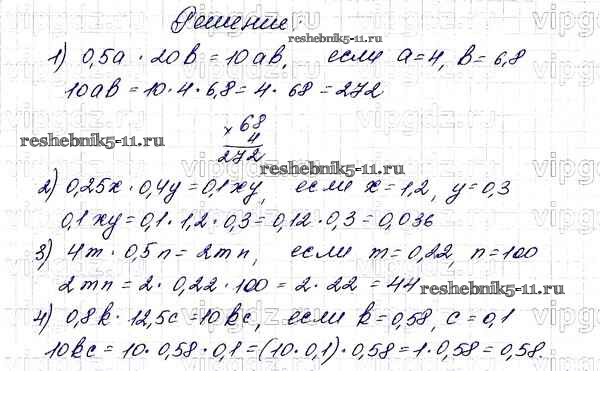 Решение:
reshebnik5-11.ru
1) 0,5a · 20b = 10ab, если a=4, b=6,8
10ab = 10·4·6,8 = 4·68 = 272
× 68
4
272
reshebnik5-11.ru
reshebnik5-11.ru
2) 0,25x · 0,4y = 0,1xy, если x=1,2, y=0,3
0,1xy = 0,1·1,2·0,3 = 0,12·0,3 = 0,036
3) 4m · 0,5n = 2mn, если m=0,22, n=100
2mn = 2·0,22·100 = 2·22 = 44
reshebnik5-11.ru
4) 0,8k · 12,5c = 10kc, если k=0,58, c=0,1
10kc = 10·0,58·0,1 = (10·0,1)·0,58 = 1·0,58 = 0,58.